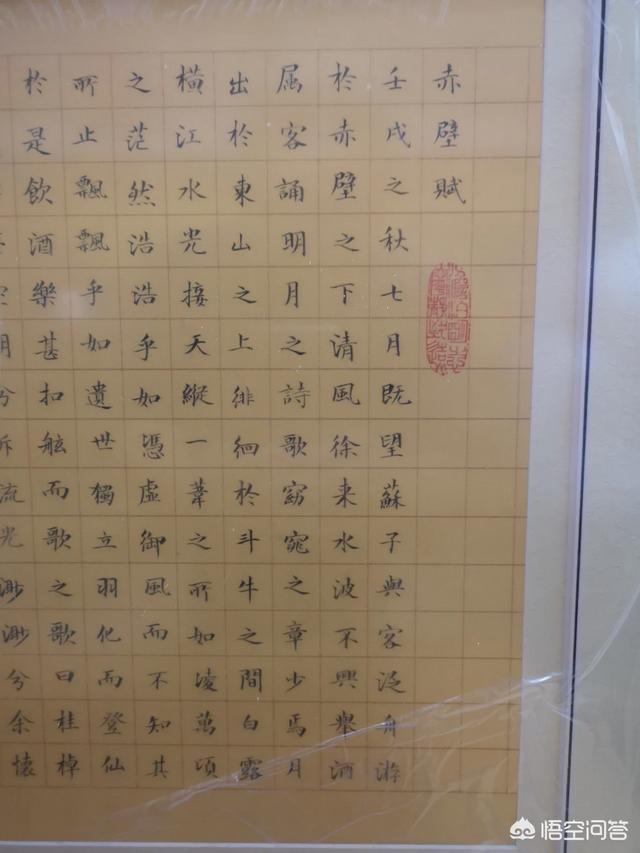 赤壁賦
壬戌之秋七月既望蘇子與客泛舟游
於赤壁之下清風徐来水波不興舉酒
属客誦明月之詩歌窈窕之章少焉月
出於東山之上徘徊於斗牛之間白露
橫江水光接天縱一葦之所如凌萬頃
之茫然浩浩乎如憑虛御風而不知其
所止飄飄乎如遺世獨立羽化而登仙
於是飲酒樂甚扣舷而歌之歌曰桂棹
流光渺渺兮余懷
悟空问答